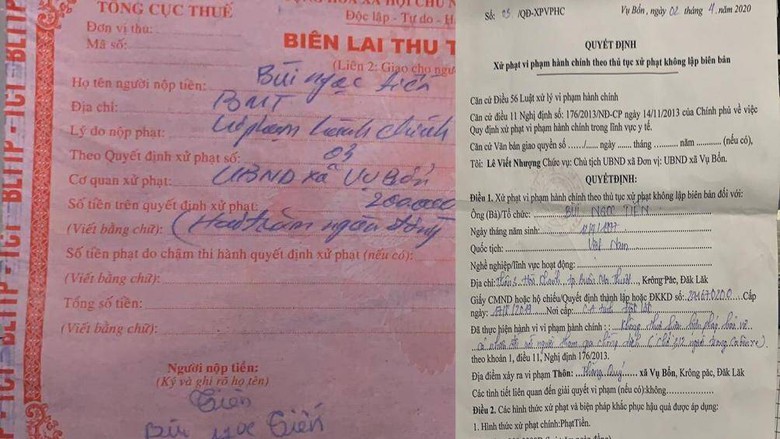 BLTTP - TCT
TỔNG CỤC THUẾ
Đơn vị thu:
Mã số:
CỘNG HÒA XÃ HỘI CHỦ N
Độc lập - Tự do - H
BIÊN LAI THU T
(Liên 2: Giao cho ngư
Họ tên người nộp tiền: Bùi Ngọc Tiến
Địa chỉ: BMT
Lý do nộp phạt: vi phạm hành chính
Theo Quyết định xử phạt số: 03
Cơ quan xử phạt: UBND xã Vụ Bổn
Số tiền trên quyết định xử phạt: 200000
(Viết bằng chữ): (Hai trăm ngàn đồng)
Số tiền phạt do chậm thi hành quyết định xử phạt (nếu có):
(Viết bằng chữ):
Tổng số tiền:
(Viết bằng chữ):
Người nộp tiền:
(Ký và ghi rõ họ tên)
Tiến
Bùi Ngọc Tiến
Số: 03 /QĐ-XPVPHC
Vụ Bổn, ngày 02 tháng 4 năm 2020
QUYẾT ĐỊNH
Xử phạt vi phạm hành chính theo thủ tục xử phạt không lập biên bản
Căn cứ Điều 56 Luật xử lý vi phạm hành chính
Căn cứ điều 11 Nghị định số: 176/2013/NĐ-CP ngày 14/11/2013 của Chính phủ về việc
Quy định xử phạt vi phạm hành chính trong lĩnh vực y tế.
Căn cứ Văn bản giao quyền số ...../...... ngày ...... tháng ....... năm ........... (nếu có),
Tôi: Lê Viết Nhượng Chức vụ: Chủ tịch UBND xã Đơn vị: UBND xã Vụ Bổn.
QUYẾT ĐỊNH:
Điều 1. Xử phạt vi phạm hành chính theo thủ tục xử phạt không lập biên bản đối với:
Ông (Bà)/Tổ chức: BÙI NGỌC TIẾN
Ngày tháng năm sinh: 1997
Quốc tịch: Việt Nam
Nghề nghiệp/lĩnh vực hoạt động:
Địa chỉ: Thôn 3, Hòa Khánh, tp Buôn Ma Thuột, Krông Pắc, Đăk Lăk
Giấy CMND hoặc hộ chiếu/Quyết định thành lập hoặc ĐKKD số: Cấp
ngày: Nơi cấp: CA tỉnh Đắk Lắk
Đã thực hiện hành vi vi phạm hành chính: Không thực hiện biện pháp bảo vệ
cá nhân đối với người tham gia chống dịch
theo khoản 1, điều 11, Nghị định 176/2013.
Địa điểm xảy ra vi phạm: Thôn: xã Vụ Bổn, Krông pắc, Đăk Lăk
Các tình tiết liên quan đến giải quyết vi phạm (nếu có):không
Điều 2. Các hình thức xử phạt và biện pháp khắc phục hậu quả được áp dụng:
1. Hình thức xử phạt chính:PhạtTiền.